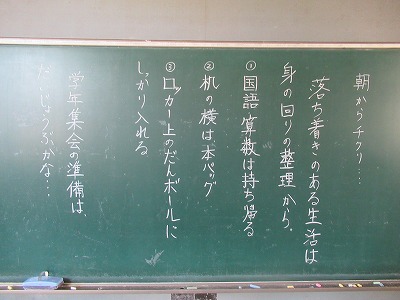 朝からチクリ…
落ち着きのある生活は
身の回りの整理から。
①国語 算数は持ち帰る
②机の横は、本バッグ
③ロッカー上のだんボールに
しっかり入れる
学年集会の準備は、
だいじょうぶかな…